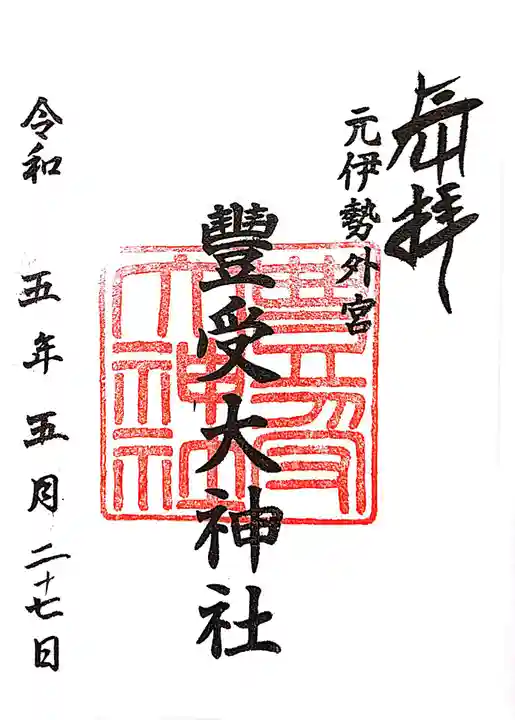 奉拝
元伊勢外宮
豐受大神社
令和 五年 五月 二十七日